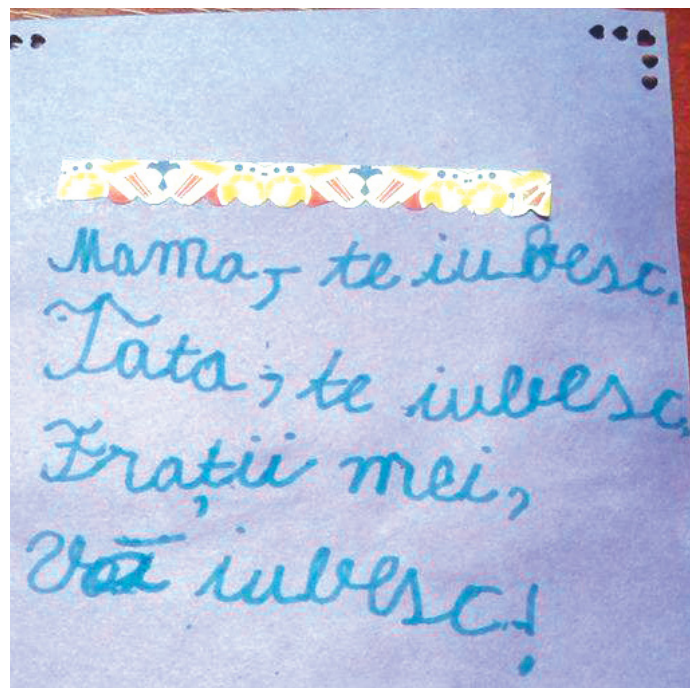 Mama, te iubesc.
Tata, te iubesc.
Frații mei,
Vă iubesc!